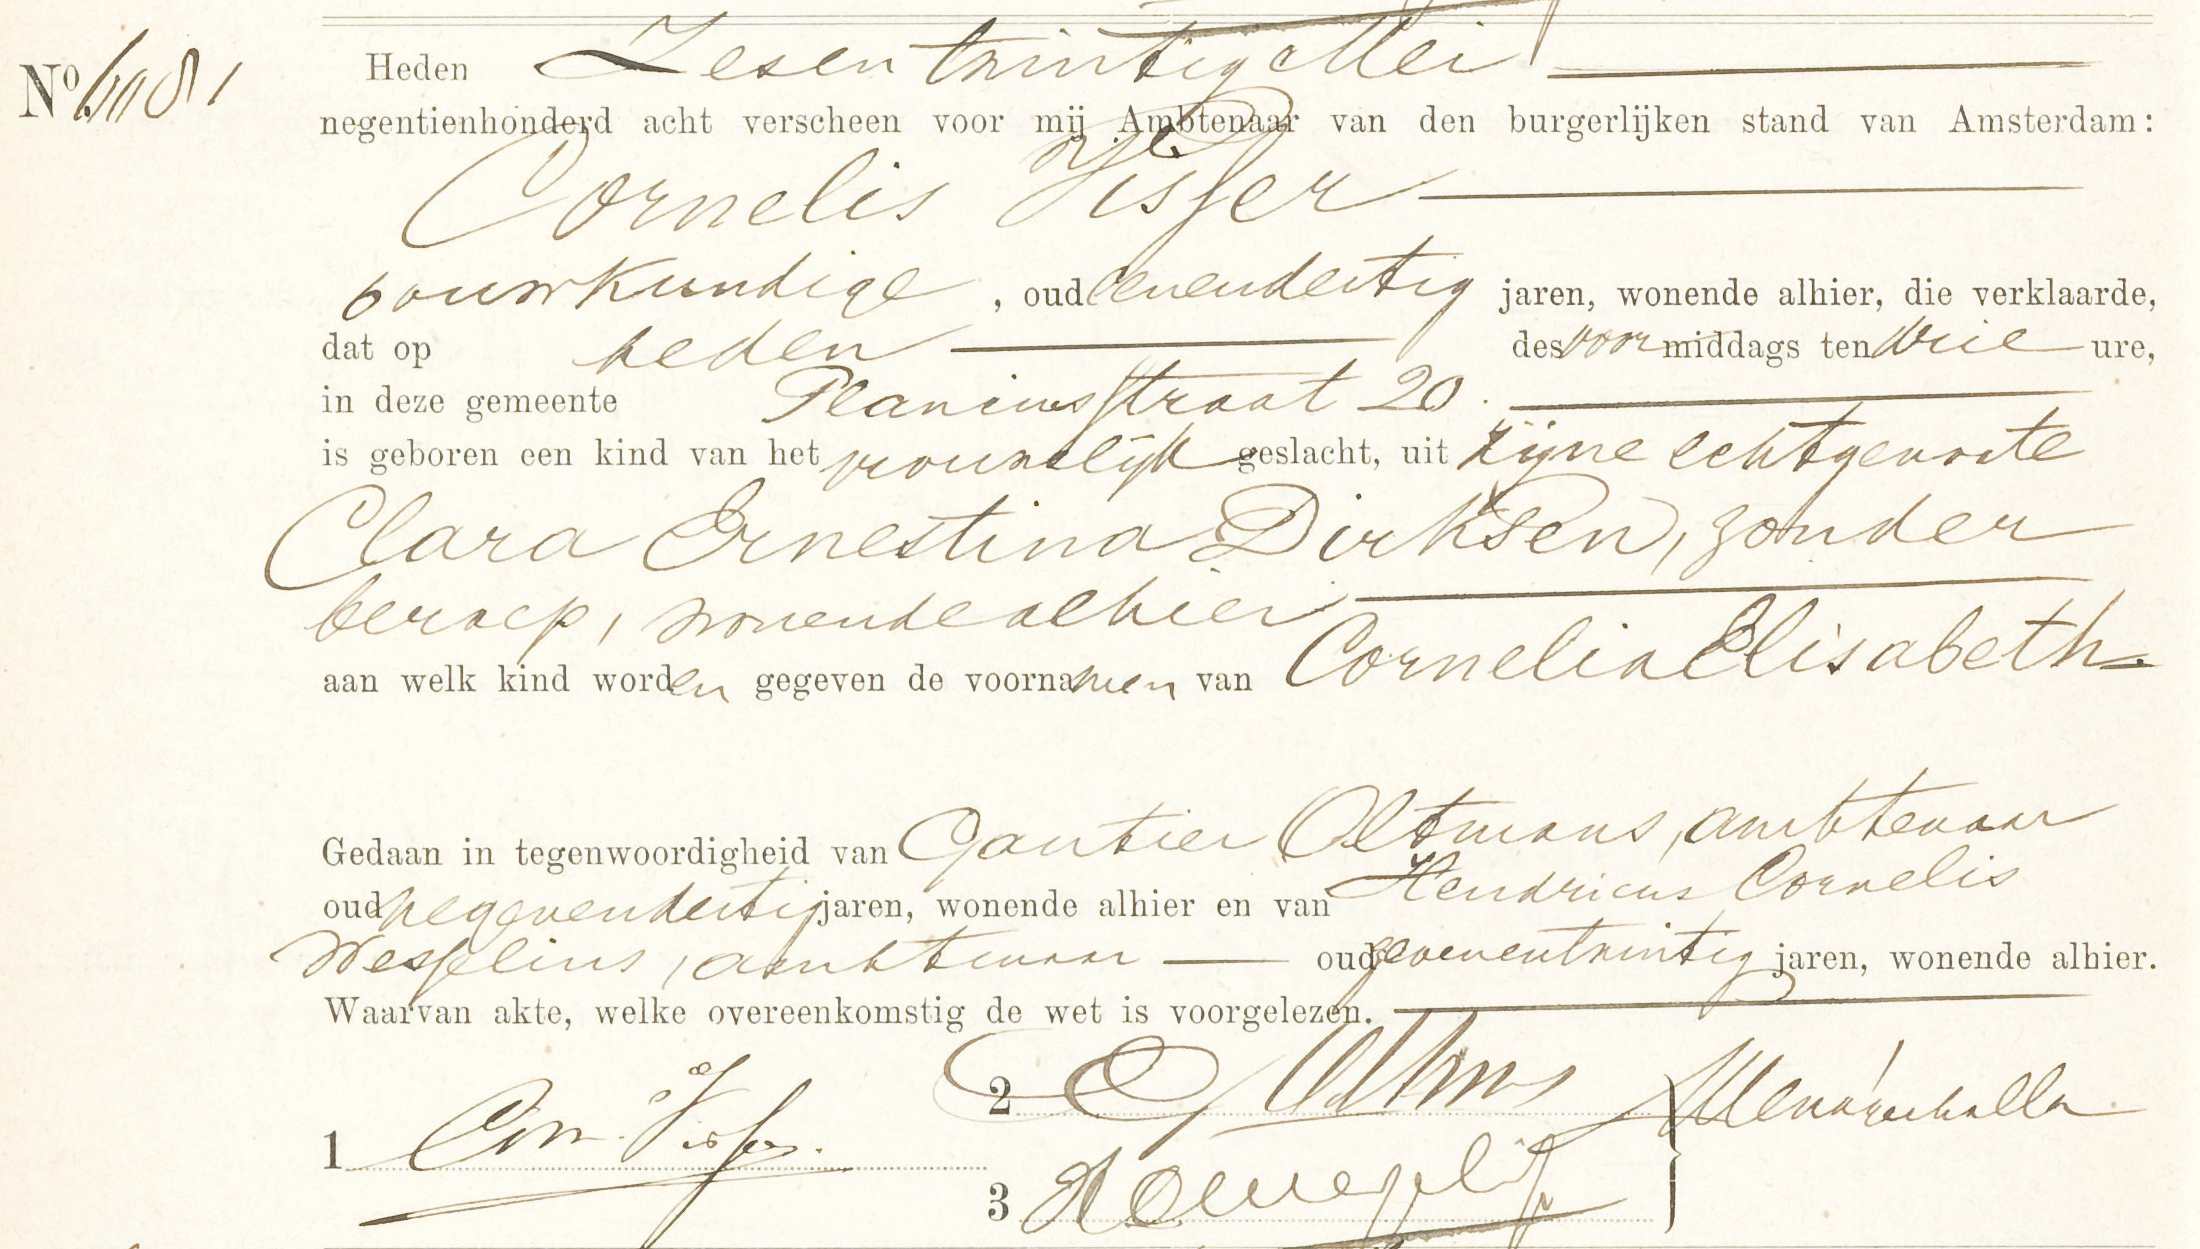 Nº 6081
Heden Zesentwintig Mei
negentienhonderd acht verscheen voor mij Ambtenaar van den burgerlijken stand van Amsterdam:
Cornelis Visser
bouwkundige , oud eenendertig jaren, wonende alhier, die verklaarde,
dat op heden des voormiddags ten drie ure,
in deze gemeente Planciusstraat 20
is geboren een kind van het vrouwelijk geslacht, uit zijne echtgenoote
Clara Ernestina Dirksen, zonder
beroep, wonende alhier
aan welk kind worden gegeven de voornamen van Cornelia Elisabeth
Gedaan in tegenwoordigheid van Gautier Oltmans, ambtenaar
oud negenendertig jaren, wonende alhier en van Hendricus Cornelis
Wesselius, ambtenaar oud zevenentwintig jaren, wonende alhier.
Waarvan akte, welke overeenkomstig de wet is voorgelezen.
1 Corn. Visser.
2 G Oltmans
3